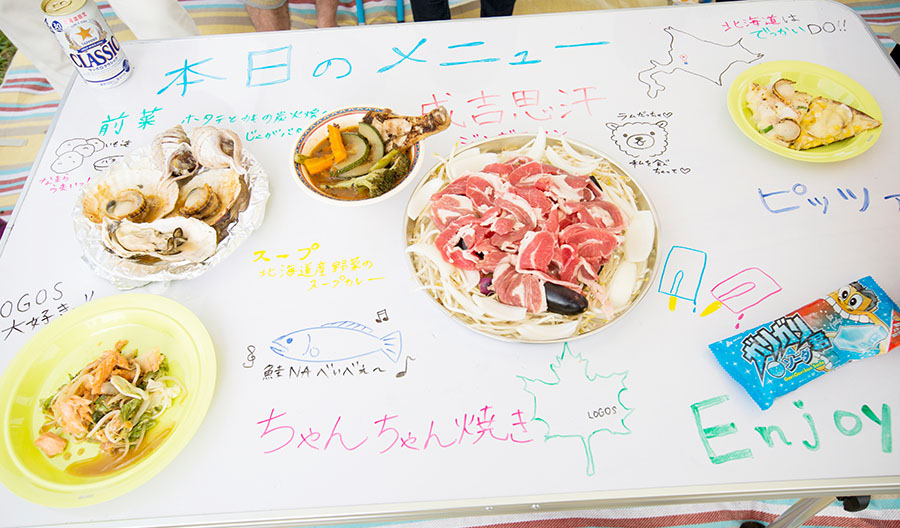 本日のメニュー
北海道は
でっかいDO!!
CLASSIC
前菜
ホタテとカキの炭火焼
じゃがバタ
成吉思汗
ラムだっちゃ
私を食べ
ちゃって
なまら
うまいっ!
ピッツァ
スープ
北海道産野菜の
スープカレー
LOGOS
大好き!!
鮭NAべいべぇ〜
ガリガリ君
ソーダ
ちゃんちゃん焼き
LOGOS
Enjoy